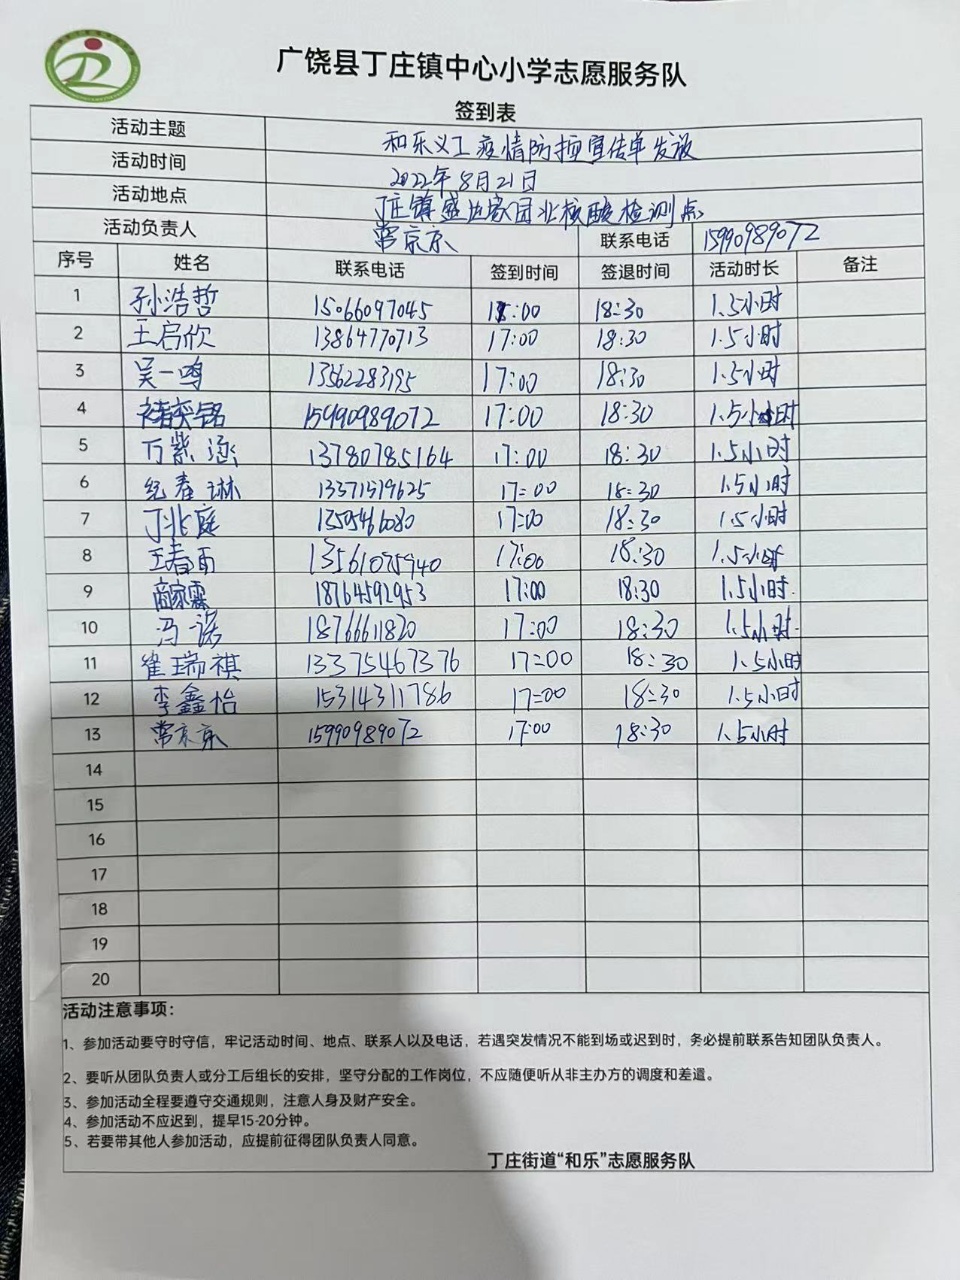 广饶县丁庄镇中心小学志愿服务队
签到表
活动主题 和乐义工疫情防控宣传单发放
活动时间 2022年8月21日
活动地点 丁庄镇盛世家园北核酸检测点
活动负责人 常京京 联系电话 15990989072
序号 姓名 联系电话 签到时间 签退时间 活动时长 备注
1 孙浩哲 15066097045 :00 18:30 1.5小时
2 王启欣 13864770713 17:00 18:30 1.5小时
3 吴一鸣 13562283195 17:00 18:30 1.5小时
4 15990989072 17:00 18:30 1.5小时
5 万紫涵 13780785164 17:00 18:30 1.5小时
6 纪春琳 13371519625 17:00 18:30 1.5小时
7 丁兆庭 17:00 18:30 1.5小时
8 王春雨 13561075940 17:00 18:30 1.5小时
9 商家霖 18764592953 17:00 18:30 1.5小时
10 冯诺 18766611820 17:00 18:30 1.5小时
11 崔瑞祺 13375467376 17:00 18:30 1.5小时
12 李鑫怡 15314311786 17:00 18:30 1.5小时
13 常京京 15990989072 17:00 18:30 1.5小时
14
15
16
17
18
19
20
活动注意事项：
1、参加活动要守时守信，牢记活动时间、地点、联系人以及电话，若遇突发情况不能到场或迟到时，务必提前联系告知团队负责人。
2、要听从团队负责人或分工后组长的安排，坚守分配的工作岗位，不应随便听从非主办方的调度和差遣。
3、参加活动全程要遵守交通规则，注意人身及财产安全。
4、参加活动不应迟到，提早15-20分钟。
5、若要带其他人参加活动，应提前征得团队负责人同意。
丁庄街道“和乐”志愿服务队